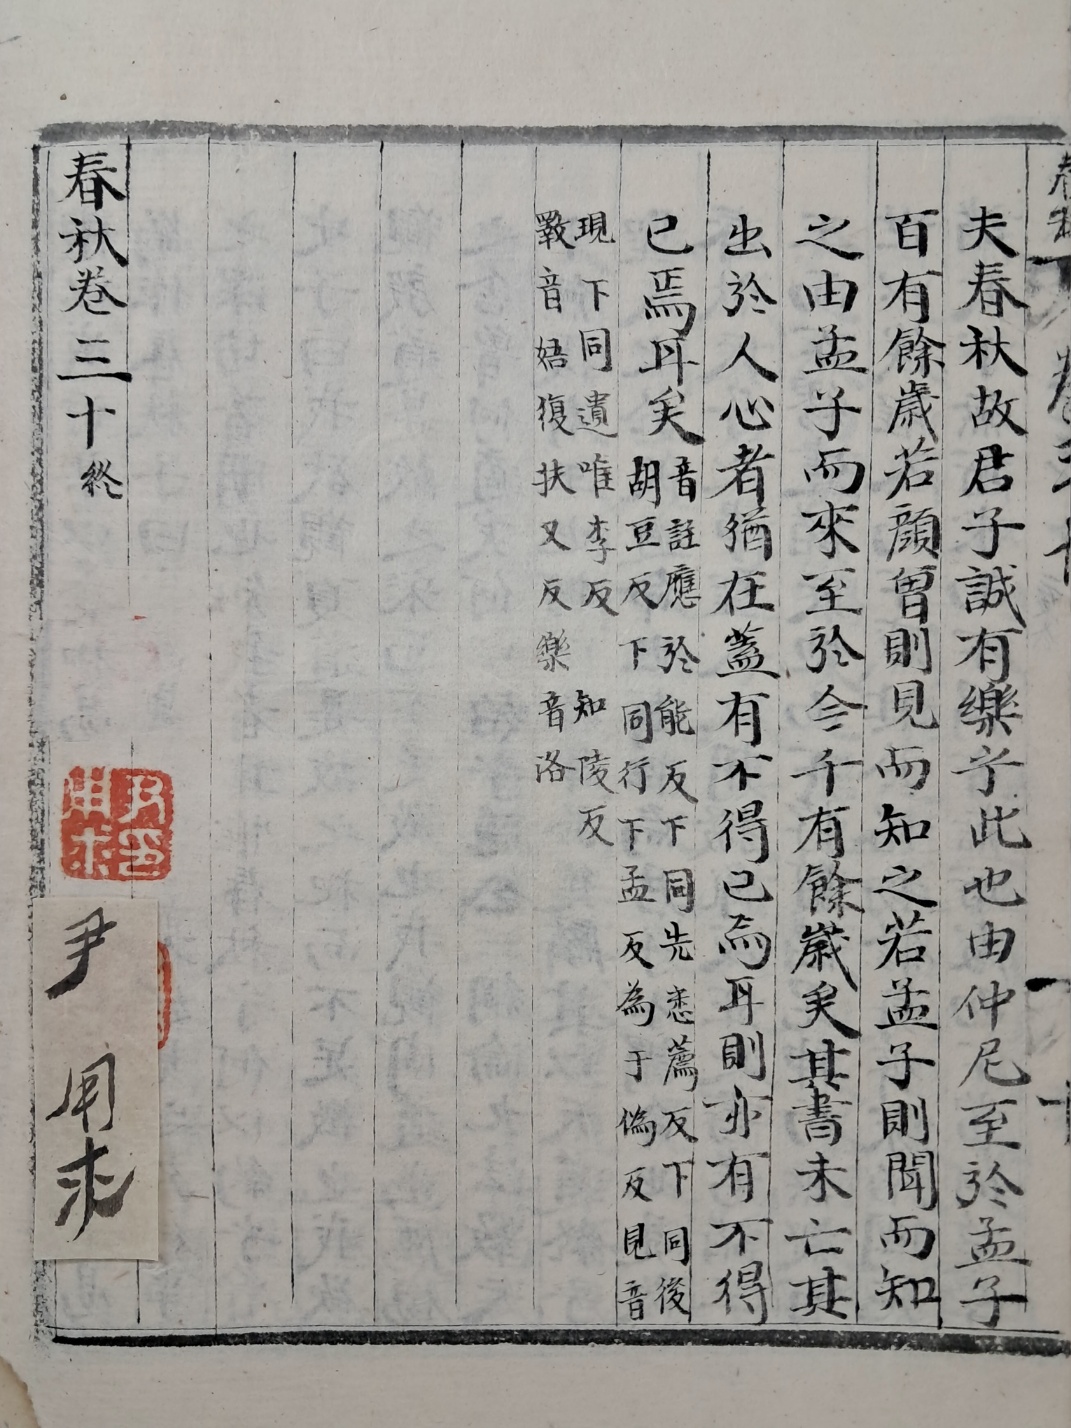 夫春秋故君子誠有樂乎此也由仲尼至於孟子
百有餘歲若顔曾則見而知之若孟子則聞而知
之由孟子而來至於今千有餘歲矣其書未亡其
出於人心者猶在蓋有不得已焉耳則亦有不得
已焉耳矣
音註應於能反下同先悉薦反下同後
胡豆反下同行下孟反為于偽反見音
現下同遺唯季反 知陵反
數音娪復扶又反樂音洛
春秋卷三十終
尹用求